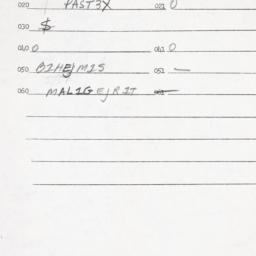 020 PAST3X 021 0
030 $
040 0 041 0
050 BIHEJMIS 051 —
060 MALIGEJRIT